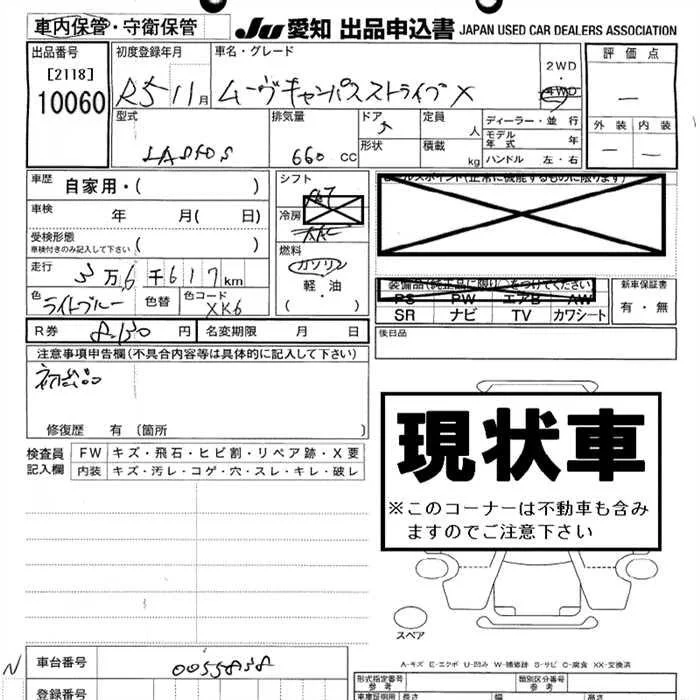 車内保管・守衛保管
JU 愛知 出品申込書 JAPAN USED CAR DEALERS ASSOCIATION
出品番号
[2118]
10060
初度登録年月
R5 11月
車名・グレード
ムーヴキャンバスストライプ X
2WD
・
4WD
評価点
―
外装 内装
― ―
型式
排気量
660 cc
ドア
5
形状
定員
人
積載
kg
ディーラー・並行
モデル年式 年
ハンドル 左・右
車歴 自家用・( )
車検 年 月( 日)
受検形態
車検付きのみ記入して下さい ( )
走行 3万6千617km
色 ライトブルー
色替
色コード
XK6
シフト
冷房
燃料
ガソリン
軽油
( ・ )
セールスポイント(正常に機能するものに限ります)
装備品(純正品に限り○をつけてください)
PS PW エアB AW
SR ナビ TV カワシート
新車保証書
有・無
R券 円
名変期限 月 日
後日品
注意事項申告欄(不具合内容等は具体的に記入して下さい)
初出品
修復歴 有 〔箇所 〕
検査員記入欄
FW キズ・飛石・ヒビ割・リペア跡・X要
内装 キズ・汚レ・コゲ・穴・スレ・キレ・破レ
現状車
※このコーナーは不動車も含み
ますのでご注意下さい
スペア
A-キズ E-エクボ U-凹み W-補修跡 S-サビ C-腐食 XX-交換済
N
車台番号
登録番号
形式指定番号
参考
類別区分番号
参考
長さ
幅
高さ